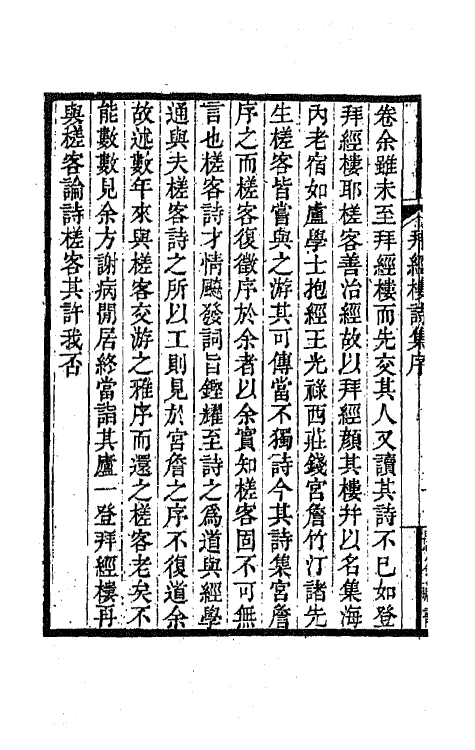 拜經樓詩集序
卷余雖未至拜經樓而先交其人又讀其詩不已如登
拜經樓耶槎客善治經故以拜經顏其樓幷以名集海
內老宿如盧學士抱經王光祿西莊錢宮詹竹汀諸先
生槎客皆嘗與之游其可傳當不獨詩今其詩集宮詹
序之而槎客復徵序於余者以余實知槎客固不可無
言也槎客詩才情飈發詞旨鏗耀至詩之爲道與經學
通與夫槎客詩之所以工則見於宮詹之序不復道余
故述數年來與槎客交游之雅序而還之槎客老矣不
能數數見余方謝病閒居終當詣其廬一登拜經樓再
與槎客論詩槎客其許我否